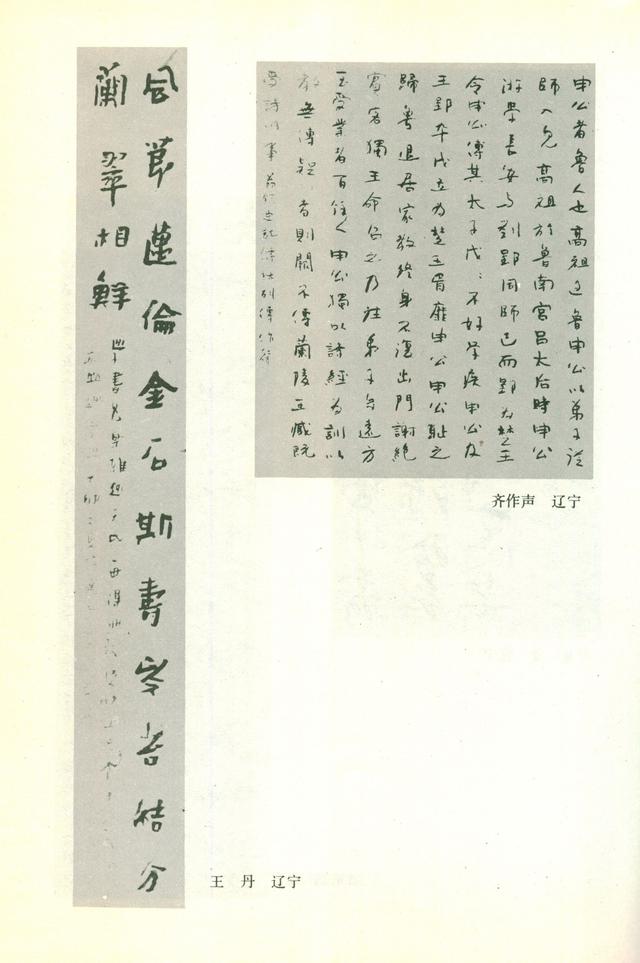 風節邁倫金石斯壽岑苔結分
蘭翠相鮮
王　丹　辽宁
申公者魯人也高祖過魯申公以弟子從
師入見高祖於魯南宮呂太后時申公
游學長安与劉郢同師已而郢為楚王
令申公傅其太子戊々不好學疾申公及
王郢卒戊立為楚王胥靡申公申公恥之
歸魯退居家教終身不復出門謝絕
賓客獨王命召之乃往弟子自遠方
至受業者百餘人申公獨以詩經為訓以
教無傳疑々者則闕不傳蘭陵王臧既
受詩以事
齐作声　辽宁